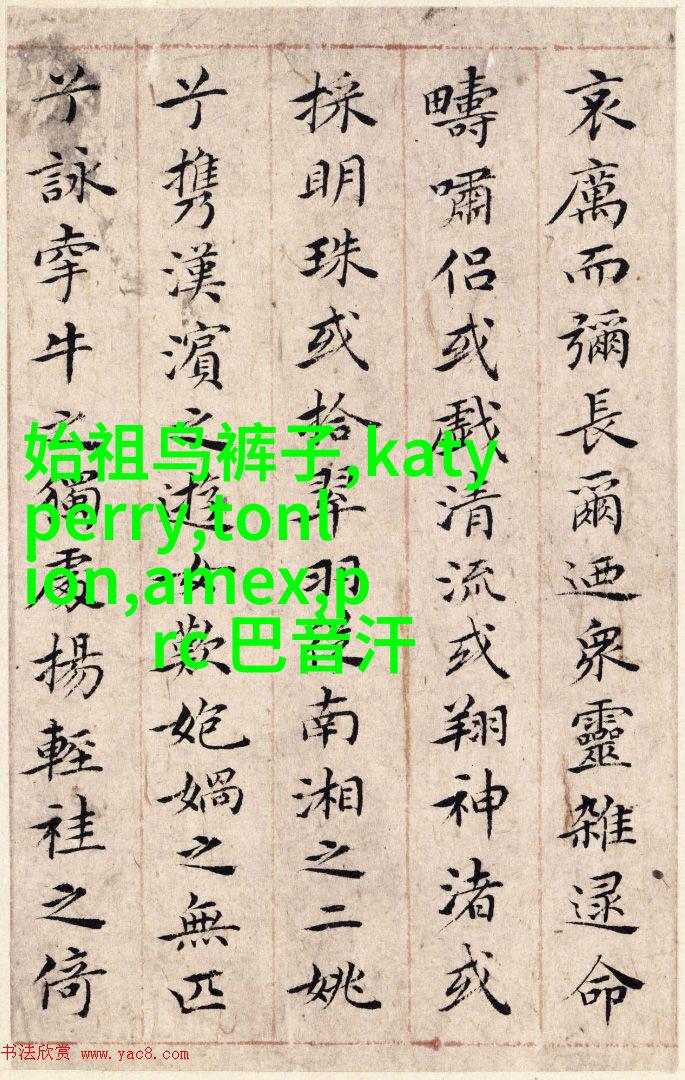 哀厲而彌長爾迺衆靈雜遝命
疇嘯侶或戲清流或翔神渚或
採明珠或拾翠羽從南湘之二姚
兮攜漢濱之遊女歎媧之無匹
兮詠牽牛之獨處揚輕袿之倚
始祖鸟裤子,katy
perry,tonl
ion,amex,p
rc 巴音汗
书法欣赏 www.yac8.com